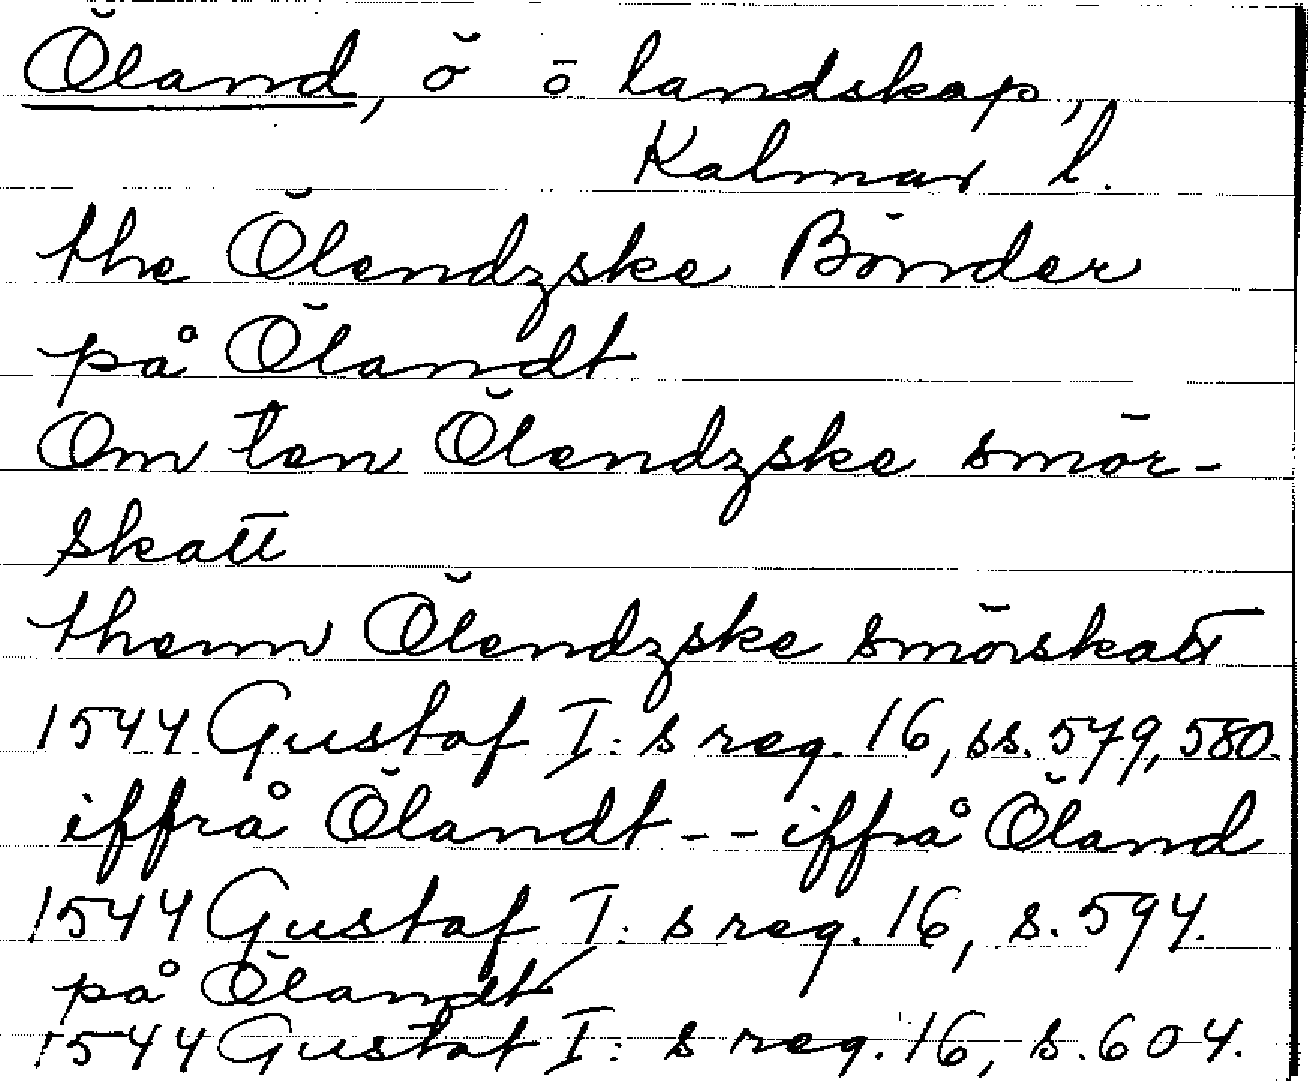 Öland, ö o landskap,
Kalmar l.
the Ölendzske Bönder
på Ölandt
Om ten Ölendzske smör-
skatt
thenn Ölendzske smörskatt
1544 Gustaf I:s reg. 16, ss. 579, 580.
iffrå Ölandt -- iffrå Öland
1544 Gustaf I:s reg. 16, s. 594.
på Ölandt
1544 Gustaf I:s reg. 16, s. 604.